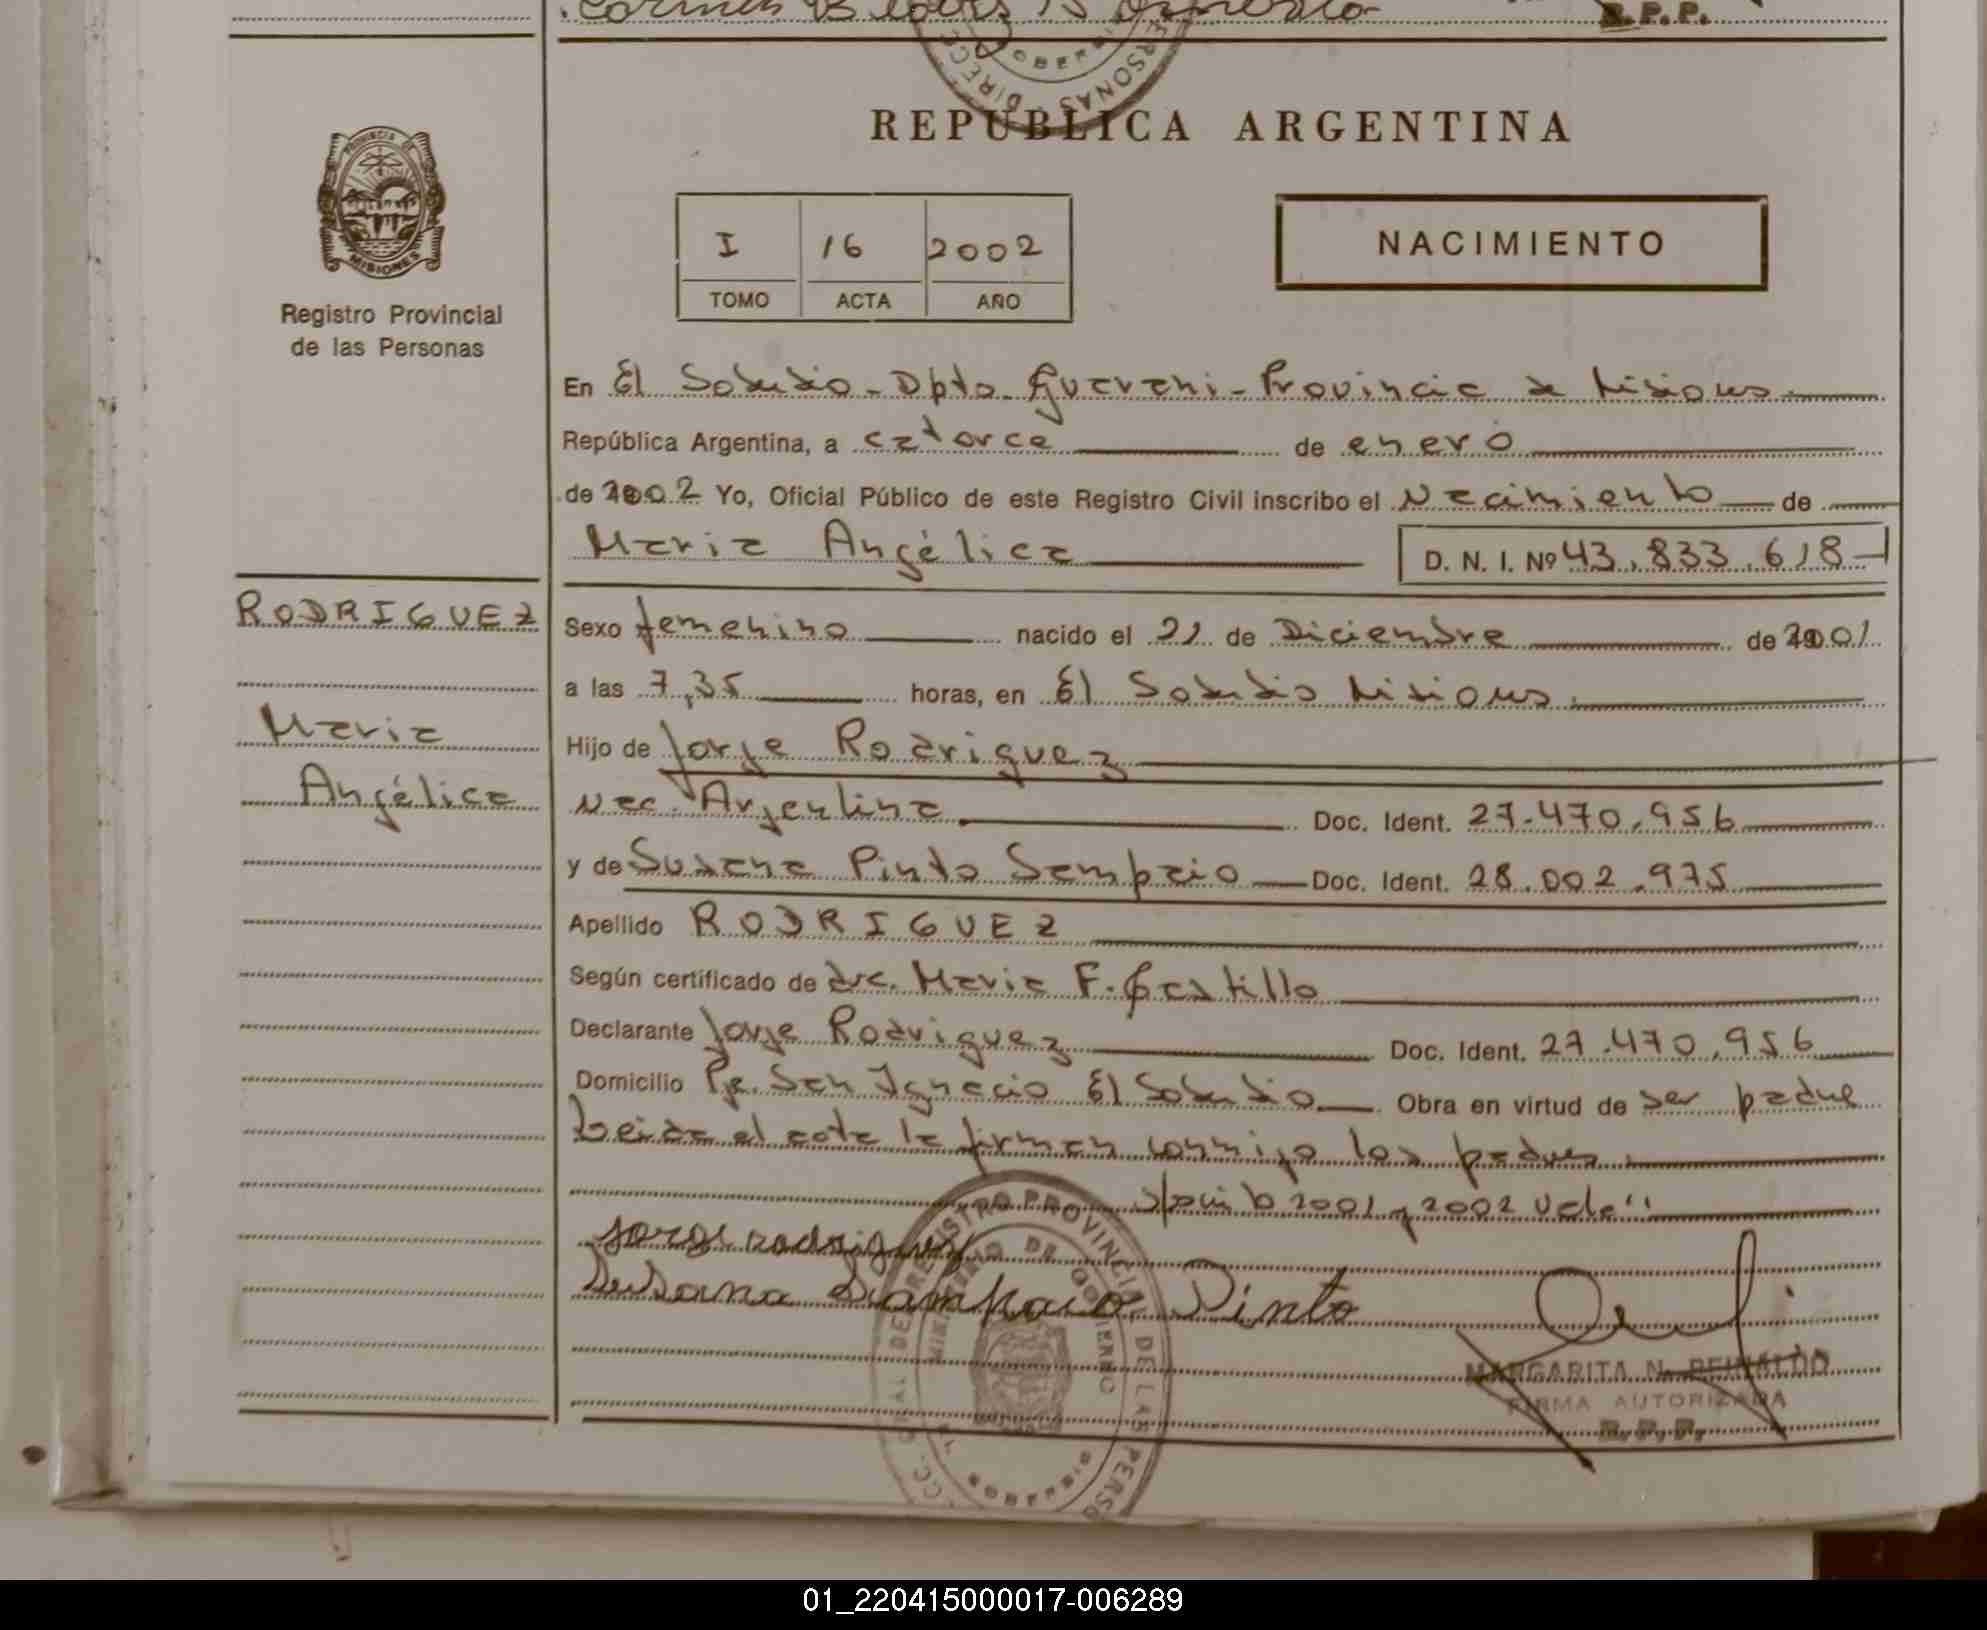 R.P.P.
REPUBLICA ARGENTINA
PROVINCIA DE
MISIONES
Registro Provincial
de las Personas
I 16 2002
TOMO ACTA AÑO
NACIMIENTO
En El Soberbio - Dpto. Guarani - Provincia de Misiones
República Argentina, a catorce de enero
de 2002 Yo, Oficial Público de este Registro Civil inscribo el Nacimiento de
Maria Angélica D. N. I. Nº 43.833.618
RODRIGUEZ
Maria
Angélica
Sexo femenino nacido el 21 de Diciembre de 2001
a las 7,35 horas, en El Soberbio Misiones.
Hijo de Jorge Rodriguez
Nac. Argentina Doc. Ident. 27.470.956
y de Susana Pinto Sampaio Doc. Ident. 28.002.975
Apellido RODRIGUEZ
Según certificado de dra. Maria F. Castillo
Declarante Jorge Rodriguez Doc. Ident. 27.470.956
Domicilio Pje. San Ignacio El Soberbio Obra en virtud de ser padre
Leida el acta la firman conmigo los padres
2001 y 2002 Vale"
Jorge rodriguez
Susana Sampaio Pinto
MARGARITA N. REINALDO
FIRMA AUTORIZADA
R.P.P.
01_220415000017-006289